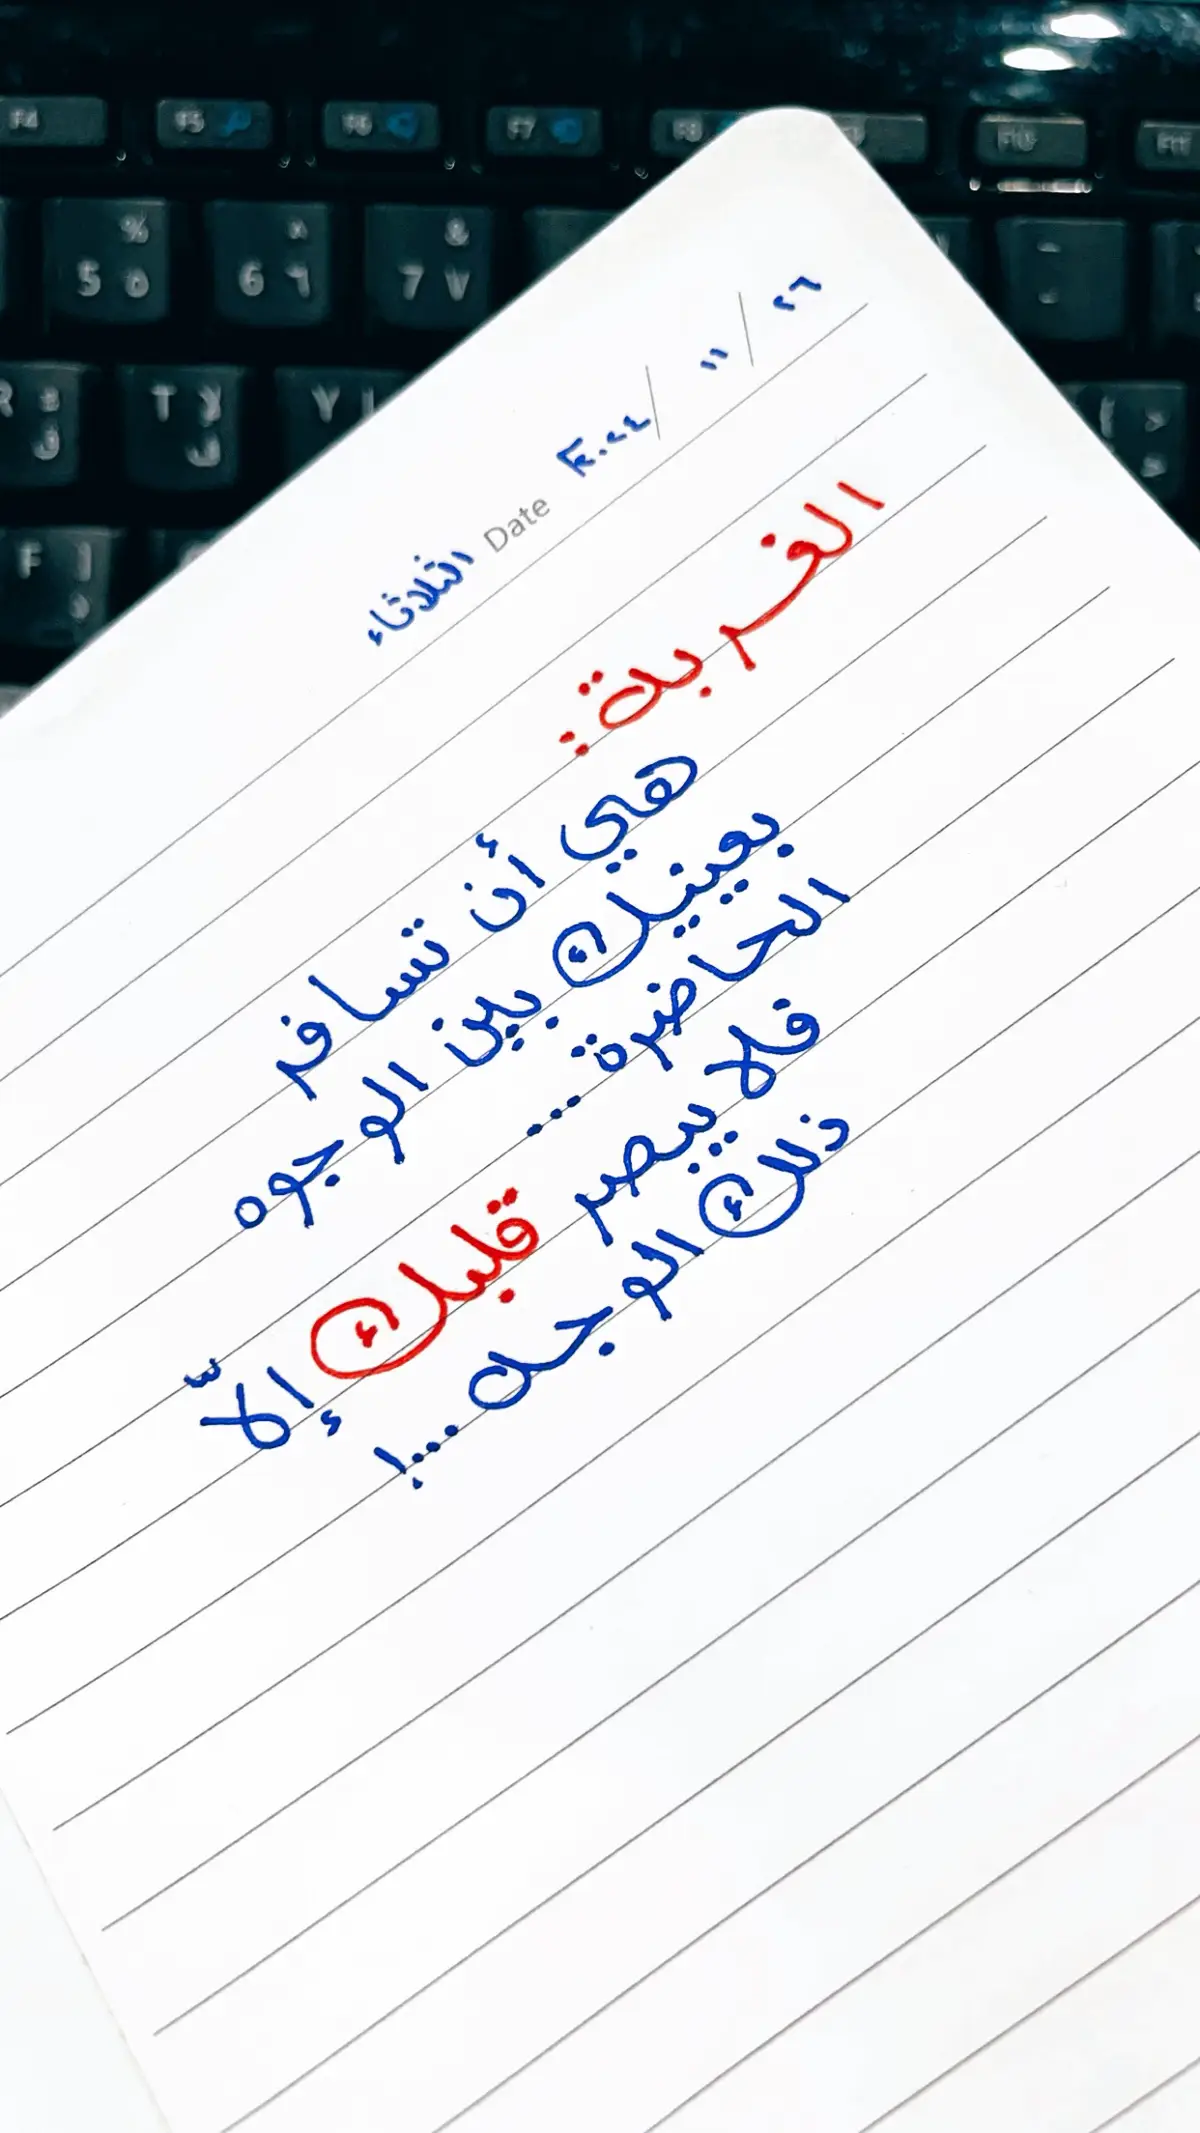 F4 F5 F6 F7 F8 F10 F11
% & 
5 ٥ 6 ٦ 7 ٧
R ق T ف Y
F
الثلاثاء Date ٢٠٢٤ / ١١ / ٢٦
الغربة:
هي أن تسافر
بعينيك بين الوجوه
الحاضرة ...
فلا يبصر قلبك إلّا
ذلك الوجه ...!